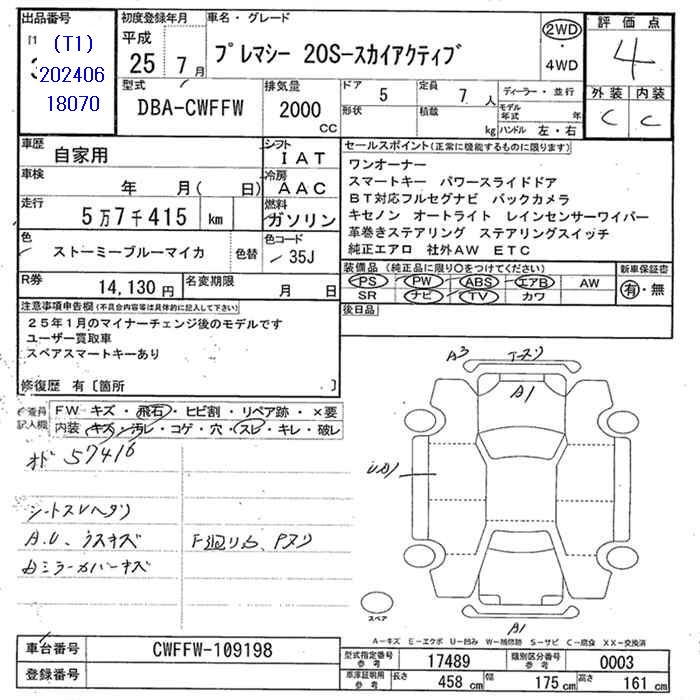 出品番号
(T1)
202406
18070
初度登録年月
平成
25年7月
車名・グレード
プレマシー 20Sースカイアクティブ
2WD
・
4WD
評価点
4
外装 内装
C C
型式
DBA-CWFFW
排気量
2000
CC
ドア
5
定員
7人
形状
積載
kg
ディーラー・並行
モデル年式 年
ハンドル 左・右
車歴
自家用
シフト
IAT
車検
年 月( 日)
冷房
AAC
走行
5万7千415 km
燃料
ガソリン
色
ストーミーブルーマイカ
色替
色コード
35J
R券
14,130円
名変期限
月 日
セールスポイント(正常に機能するものに限ります)
ワンオーナー
スマートキー パワースライドドア
BT対応フルセグナビ バックカメラ
キセノン オートライト レインセンサーワイパー
革巻きステアリング ステアリングスイッチ
純正エアロ 社外AW ETC
装備品(純正品に限り○をつけてください)
PS PW ABS エアB AW
SR ナビ TV カワ
新車保証書
有・無
後日品
注意事項申告欄(不具合内容等は具体的に記入して下さい)
25年1月のマイナーチェンジ後のモデルです
ユーザー買取車
スペアスマートキーあり
修復歴 有〔箇所 〕
検査員
記入欄
FW キズ・飛石・ヒビ割・リペア跡・×要
内装 キズ・汚レ・コゲ・穴・スレ・キレ・破レ
オド 57416
シートスレヘタリ
A.U、ウスキズ
F廻リム、Pヌリ
ミラーカバーキズ
A3
A1
A1
スペア
A-キズ E-エクボ U-凹み W-補修跡 S-サビ C-腐食 XX-交換済
車台番号
CWFFW-109198
登録番号
型式指定番号
参考
17489
類別区分番号
参考
0003
車庫証明用
参考
長さ
458 cm
幅
175 cm
高さ
161 cm